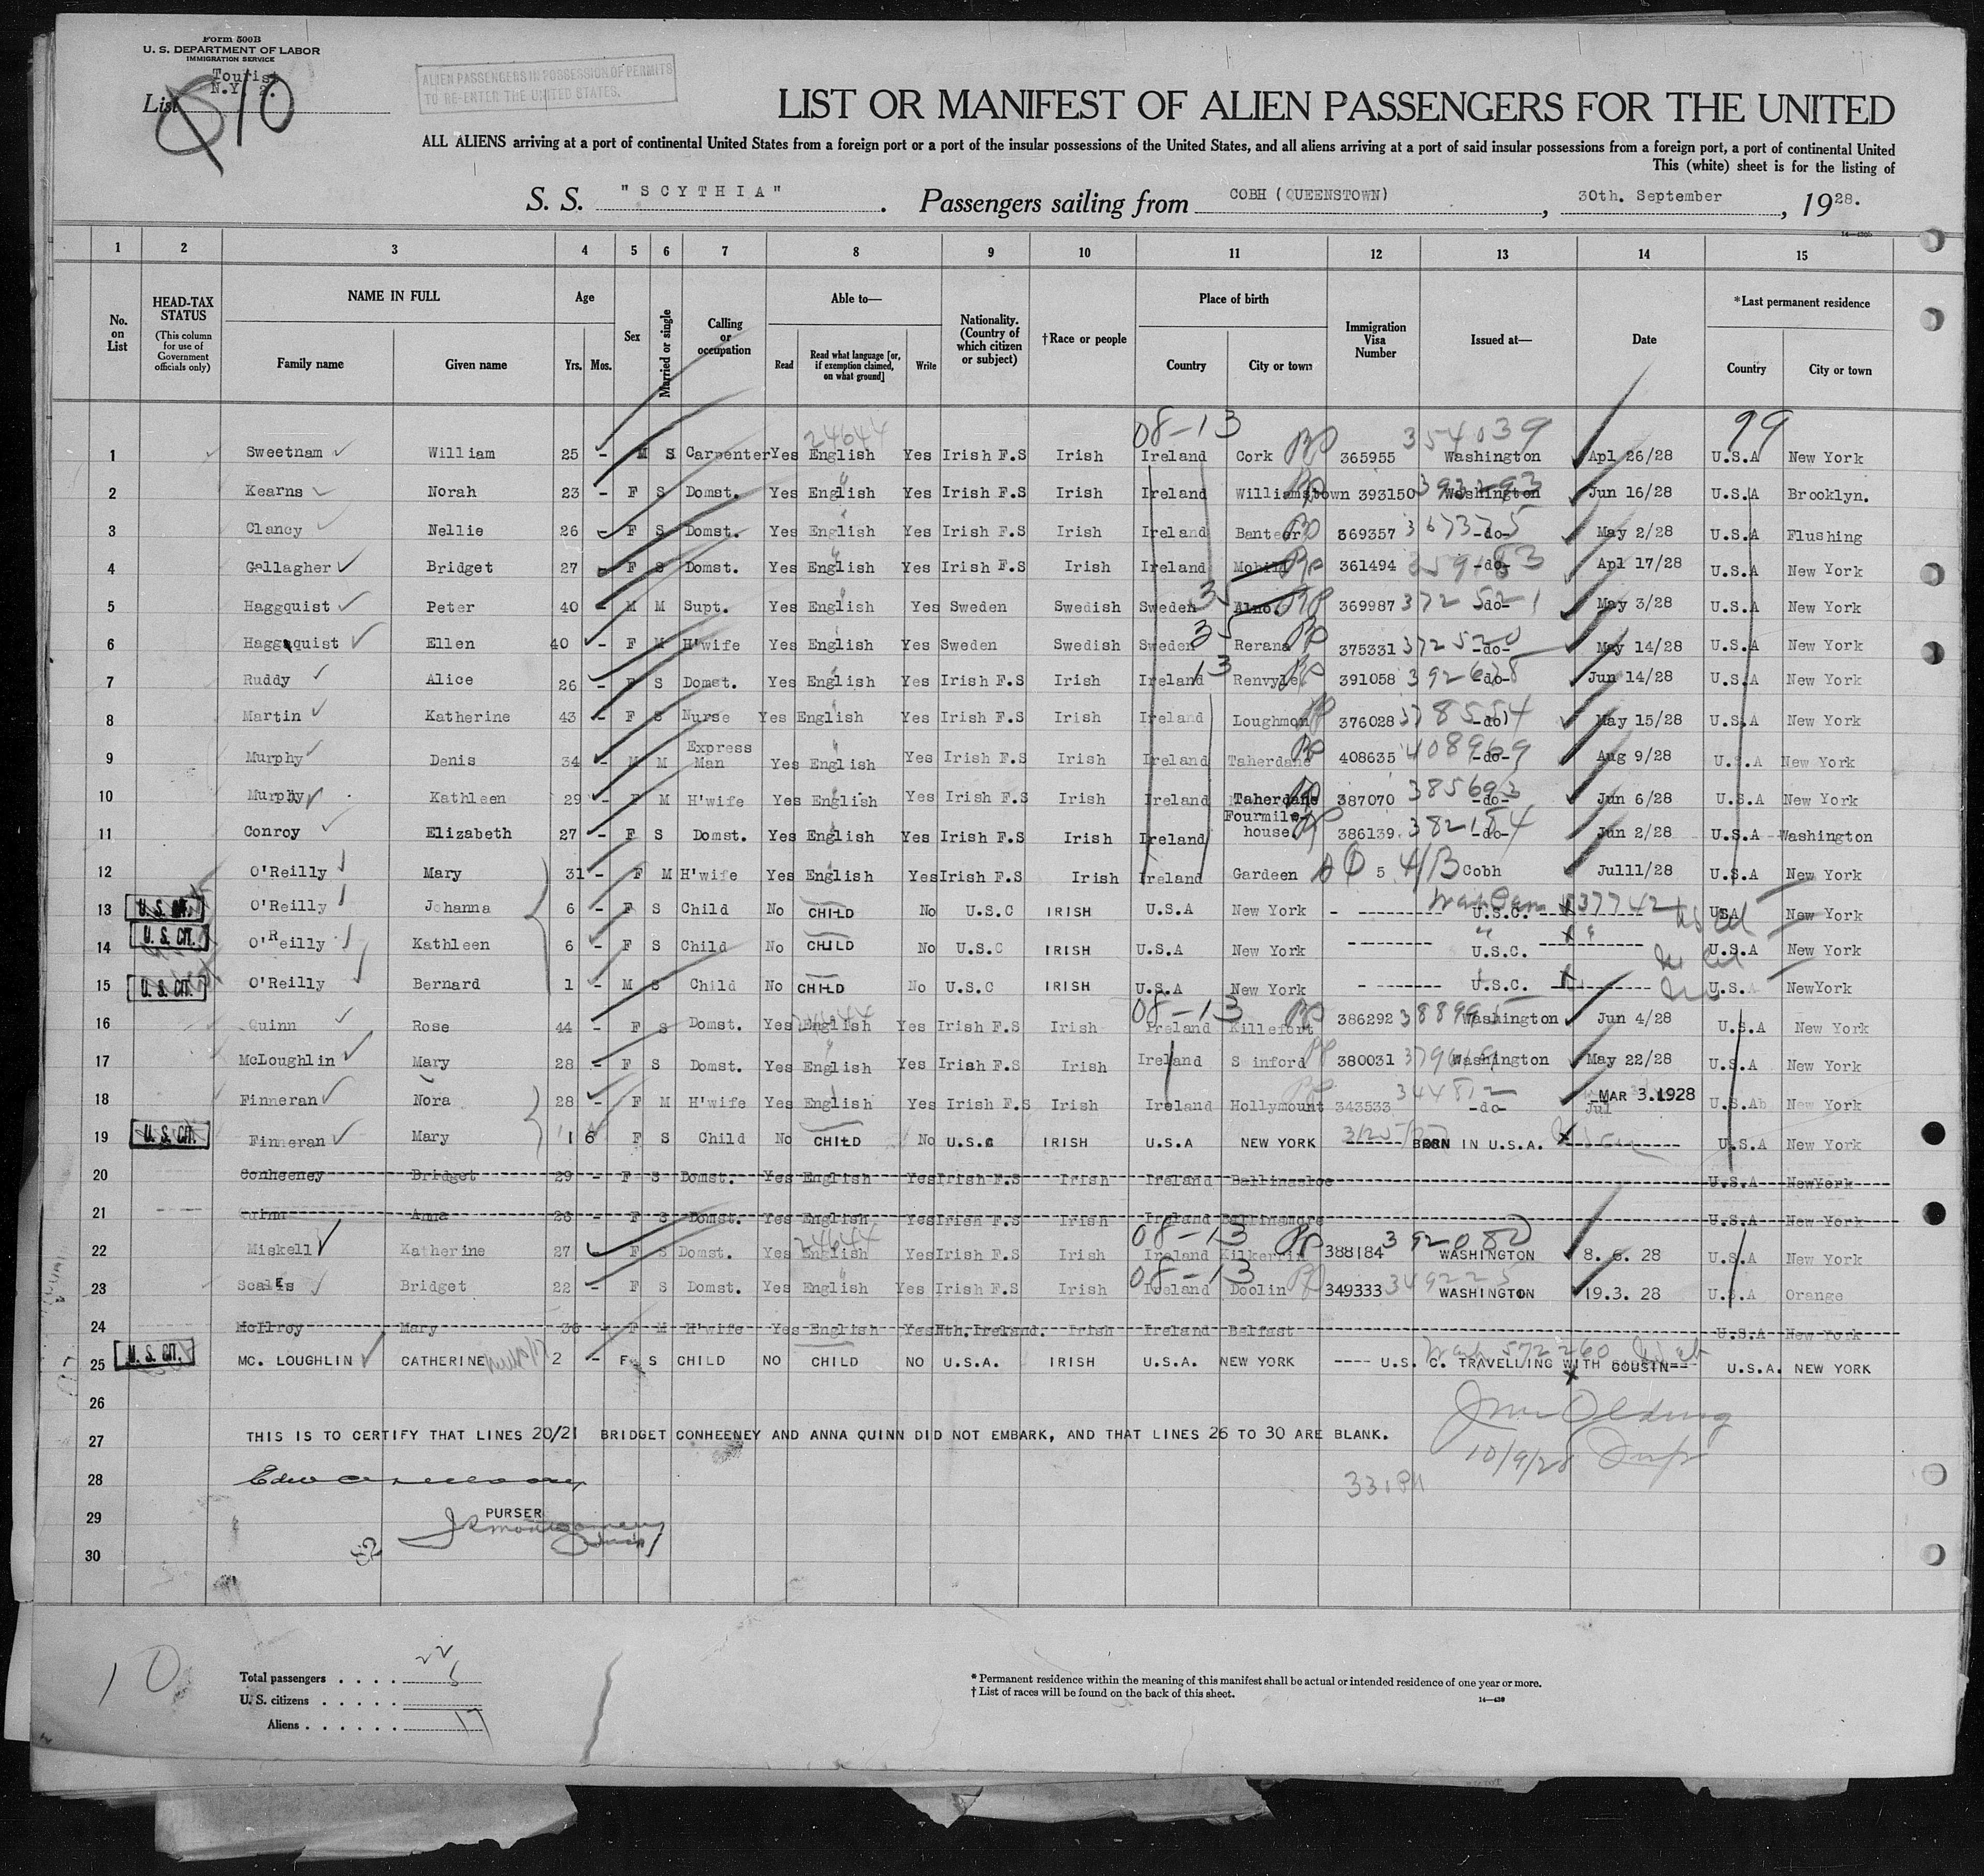 Form 500B
U. S. DEPARTMENT OF LABOR
IMMIGRATION SERVICE
Tourist
N.Y 2.
List 10
ALIEN PASSENGERS IN POSSESSION OF PERMITS
TO RE-ENTER THE UNITED STATES.
LIST OR MANIFEST OF ALIEN PASSENGERS FOR THE UNITED
ALL ALIENS arriving at a port of continental United States from a foreign port or a port of the insular possessions of the United States, and all aliens arriving at a port of said insular possessions from a foreign port, a port of continental United
This (white) sheet is for the listing of
S. S. "SCYTHIA". Passengers sailing from COBH (QUEENSTOWN), 30th. September, 1928.
1 2 3 4 5 6 7 8 9 10 11 12 13 14 15
No. on List
HEAD-TAX STATUS (This column for use of Government officials only)
NAME IN FULL Family name Given name
Age Yrs. Mos.
Sex
Married or single
Calling or occupation
Able to— Read Read what language [or, if exemption claimed, on what ground] Write
Nationality. (Country of which citizen or subject)
†Race or people
Place of birth Country City or town
Immigration Visa Number
Issued at—
Date
*Last permanent residence Country City or town
08-13 354039 99
1 Sweetnam William 25 - M S Carpenter Yes English Yes Irish F.S Irish Ireland Cork 365955 Washington Apl 26/28 U.S.A New York
2 Kearns Norah 23 - F S Domst. Yes English Yes Irish F.S Irish Ireland Williamstown 393150 Washington Jun 16/28 U.S.A Brooklyn.
3 Clancy Nellie 26 - F S Domst. Yes English Yes Irish F.S Irish Ireland Banteer 369357 -do- May 2/28 U.S.A Flushing
4 Gallagher Bridget 27 - F S Domst. Yes English Yes Irish F.S Irish Ireland 361494 -do- Apl 17/28 U.S.A New York
5 Haggquist Peter 40 - M M Supt. Yes English Yes Sweden Swedish Sweden 369987 -do- May 3/28 U.S.A New York
6 Haggquist Ellen 40 - F M H'wife Yes English Yes Sweden Swedish Sweden Rerana 375331 -do- May 14/28 U.S.A New York
7 Ruddy Alice 26 - F S Domst. Yes English Yes Irish F.S Irish Ireland Renvyle 391058 -do- Jun 14/28 U.S.A New York
8 Martin Katherine 43 - F S Nurse Yes English Yes Irish F.S Irish Ireland Loughmon 376028 -do- May 15/28 U.S.A New York
9 Murphy Denis 34 - M M Express Man Yes English Yes Irish F.S Irish Ireland Taherdane 408635 408969 -do- Aug 9/28 U.S.A New York
10 Murphy Kathleen 29 - F M H'wife Yes English Yes Irish F.S Irish Ireland Taherdane 387070 385693 -do- Jun 6/28 U.S.A New York
11 Conroy Elizabeth 27 - F S Domst. Yes English Yes Irish F.S Irish Ireland Fourmile-house 386139 382184 -do- Jun 2/28 U.S.A Washington
12 O'Reilly Mary 31 - F M H'wife Yes English Yes Irish F.S Irish Ireland Gardeen 5 4/B Cobh Jul11/28 U.S.A New York
13 U.S. CIT. O'Reilly Johanna 6 - F S Child No CHILD No U.S.C IRISH U.S.A New York - -------- U.S.C. 537742 USA New York
14 U.S. CIT. O'Reilly Kathleen 6 - F S Child No CHILD No U.S.C IRISH U.S.A New York -------- U.S.C. -------- U.S.A New York
15 U.S. CIT. O'Reilly Bernard 1 - M S Child No CHILD No U.S.C IRISH U.S.A New York -------- U.S.C. -------- U.S.A NewYork
08-13
16 Quinn Rose 44 - F S Domst. Yes English Yes Irish F.S Irish Ireland Killefort 386292 Washington Jun 4/28 U.S.A New York
17 McLoughlin Mary 28 - F S Domst. Yes English Yes Irish F.S Irish Ireland S inford 380031 Washington May 22/28 U.S.A New York
18 Finneran Nora 28 - F M H'wife Yes English Yes Irish F.S Irish Ireland Hollymount 343533 344812 -do- MAR 3.1928 New York
19 U.S. CIT. Finneran Mary 1 6 F S Child No CHILD No U.S.C IRISH U.S.A NEW YORK ------ BORN IN U.S.A. -------- U.S.A New York
20 Conheeney Bridget 29 - F S Domst. Yes English Yes Irish F.S Irish Ireland Ballinasloe U.S.A NewYork
21 Quinn Anna 26 - F S Domst. Yes English Yes Irish F.S Irish Ireland Ballinamore U.S.A New York
24644 08-13 392080
22 Miskell Katherine 27 F S Domst. Yes English Yes Irish F.S Irish Ireland Kilkerrin 388184 WASHINGTON 8. 6. 28 U.S.A New York
08-13
23 Scales Bridget 22 - F S Domst. Yes English Yes Irish F.S Irish Ireland Doolin 349333 349225 WASHINGTON 19.3. 28 U.S.A Orange
24 McIlroy Mary 36 - F M H'wife Yes English Yes Nth.Ireland. Irish Ireland Belfast U.S.A New York
25 U.S. CIT. MC. LOUGHLIN CATHERINE 2 - F S CHILD NO CHILD NO U.S.A. IRISH U.S.A. NEW YORK ---- U.S. C. TRAVELLING WITH COUSIN--- U.S.A. NEW YORK
26
27 THIS IS TO CERTIFY THAT LINES 20/21 BRIDGET CONHEENEY AND ANNA QUINN DID NOT EMBARK, AND THAT LINES 26 TO 30 ARE BLANK.
10/9/28
28
29 PURSER
30
10
Total passengers . . . . 22
U. S. citizens . . . . . 5
Aliens . . . . . . 17
* Permanent residence within the meaning of this manifest shall be actual or intended residence of one year or more.
† List of races will be found on the back of this sheet.
14—430